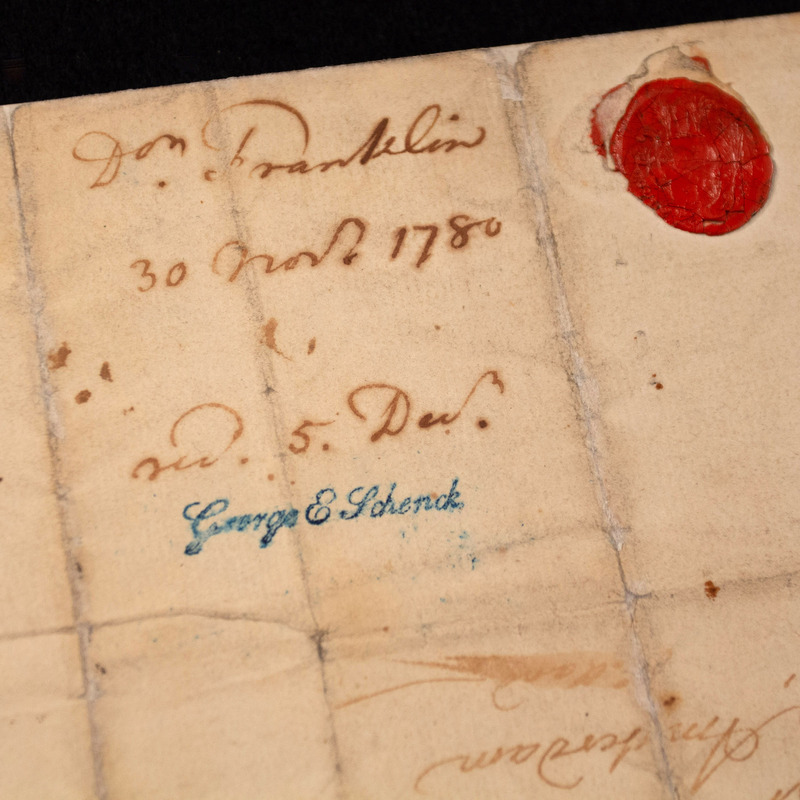 Dor. Franklin
30 Novr 1780
recd. 5. Decr.
George E Schenck
Amsterdam